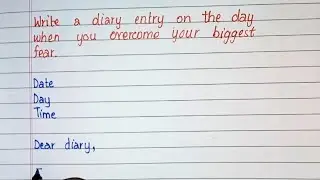 Write a diary entry on the day
when you overcome your biggest
fear.
Date
Day
Time
Dear diary,